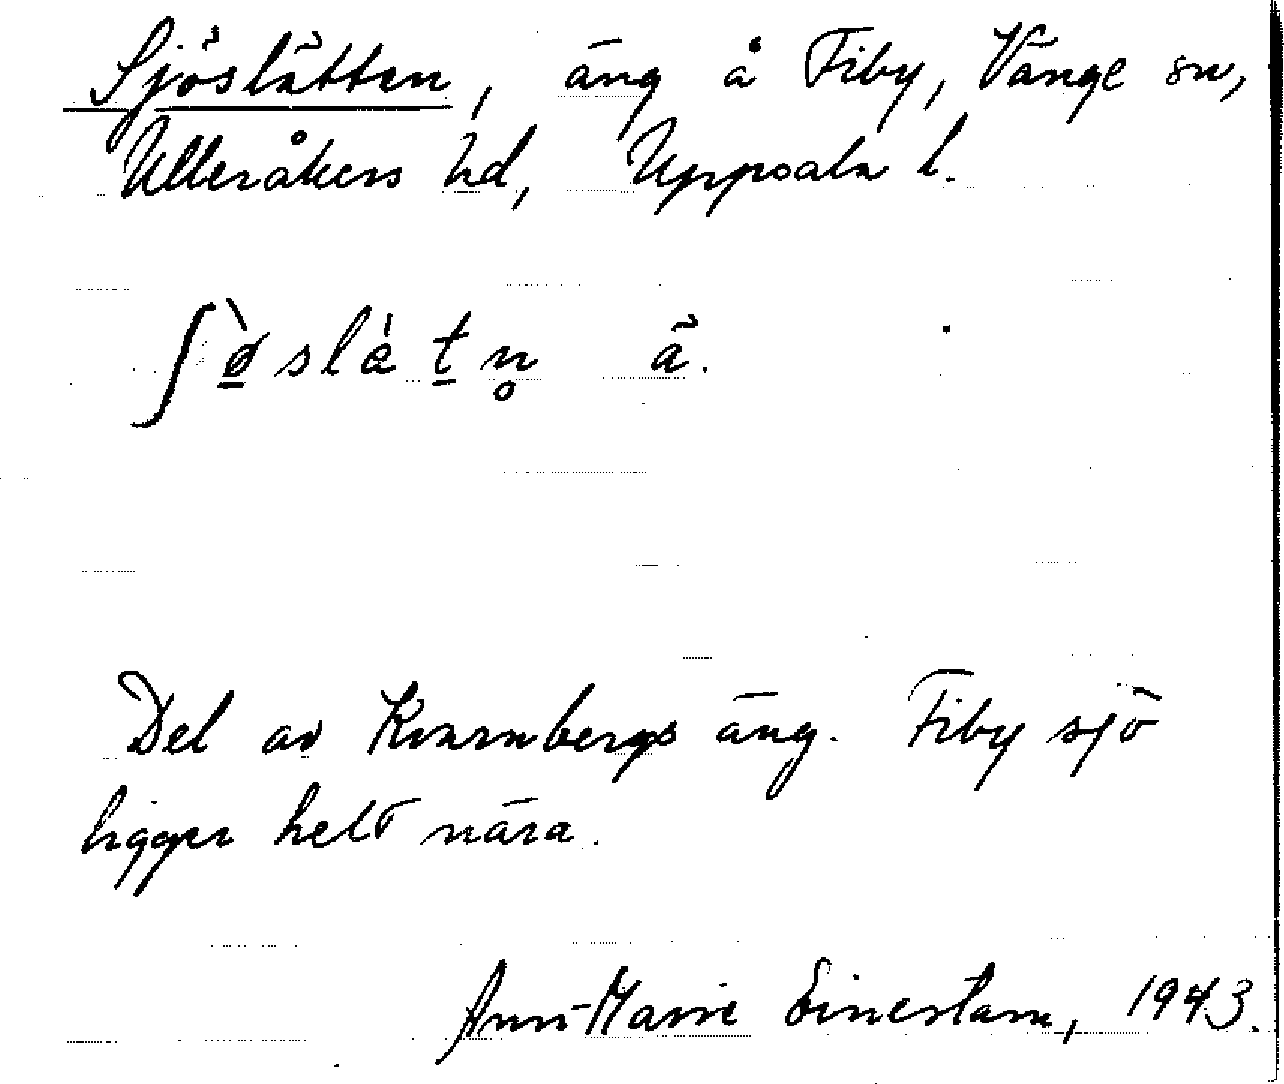 Sjöslätten, äng å Fiby, Vänge sn,
Ulleråkers hd, Uppsala l.
ʃø̀slèt̠n̥ ã.
Del av Kvarnbergs äng. Fiby sjö
ligger helt nära.
Ann-Marie Einestam, 1943.